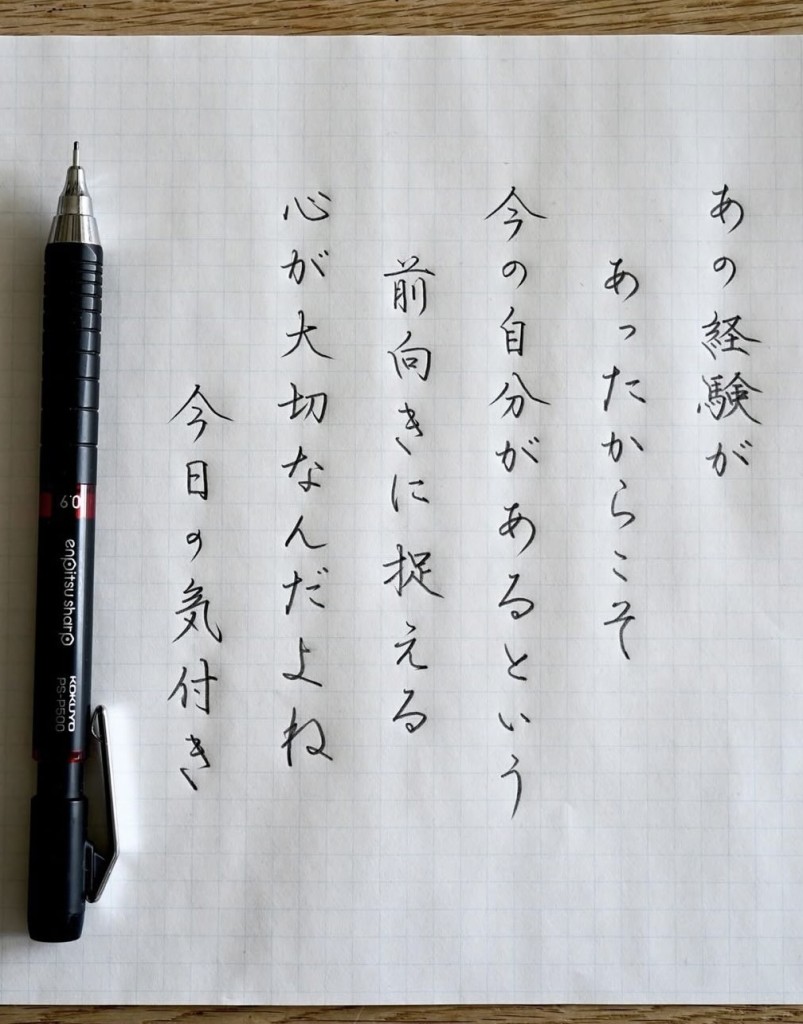 あの経験が
あったからこそ
今の自分があるという
前向きに捉える
心が大切なんだよね
今日の気付き
0.9
enpitsu sharp
KOKUYO
PS-P500